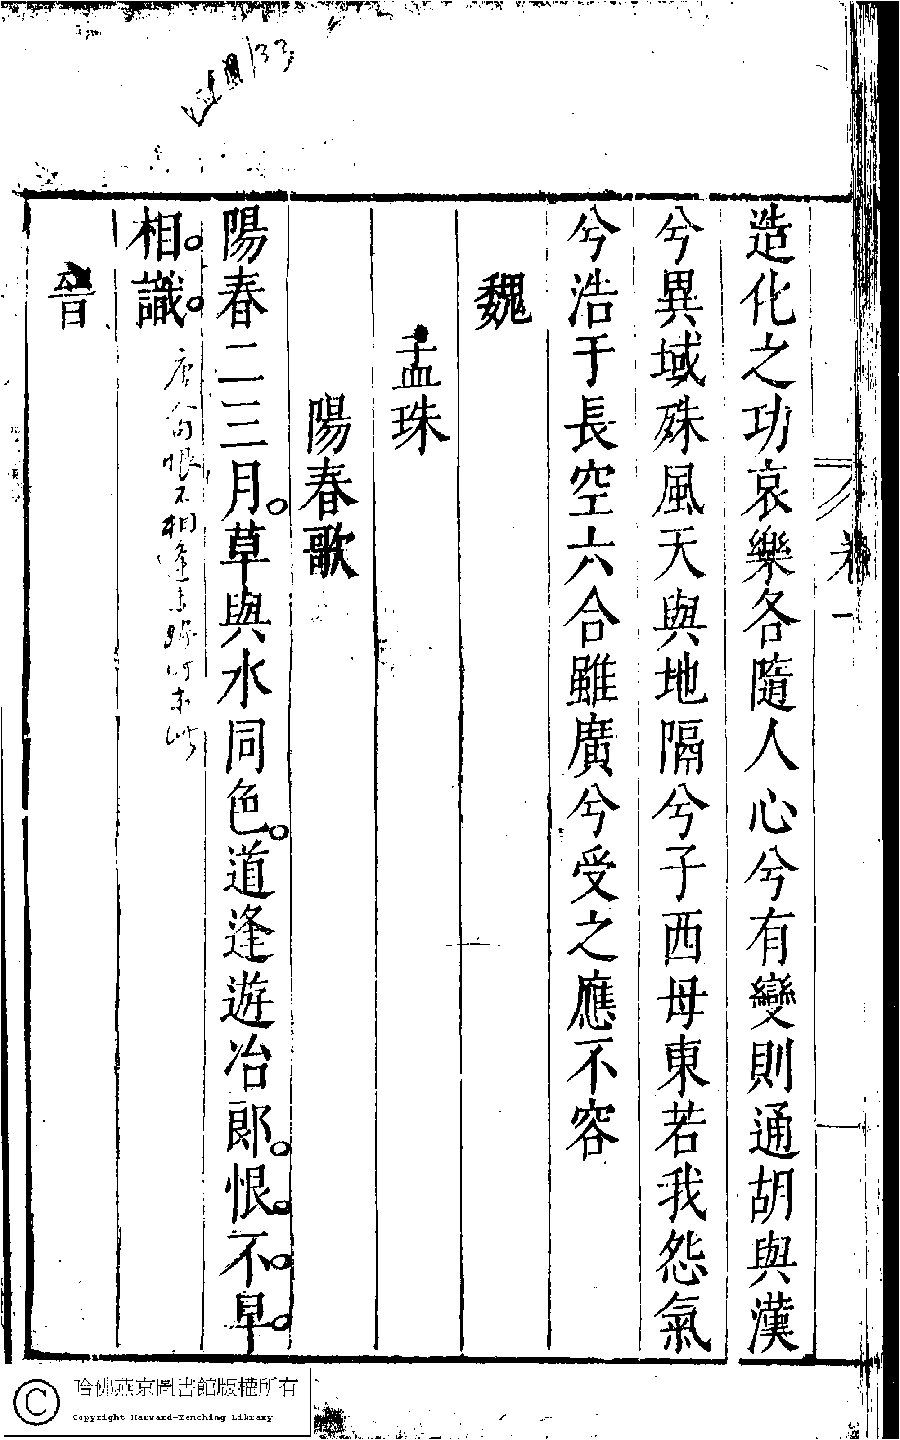 造化之功哀樂各隨人心兮有變則通胡與漢
兮異域殊風天與地隔兮子西母東若我怨氣
兮浩于長空六合雖廣兮受之應不容
魏
孟珠
陽春歌
陽春二三月草與水同色道逢遊冶郎恨不早
相識
晉
卷一
133
唐人向恨不相逢未嫁時本此
哈佛燕京圖書館版權所有
Copyright Harvard-Yenching Library